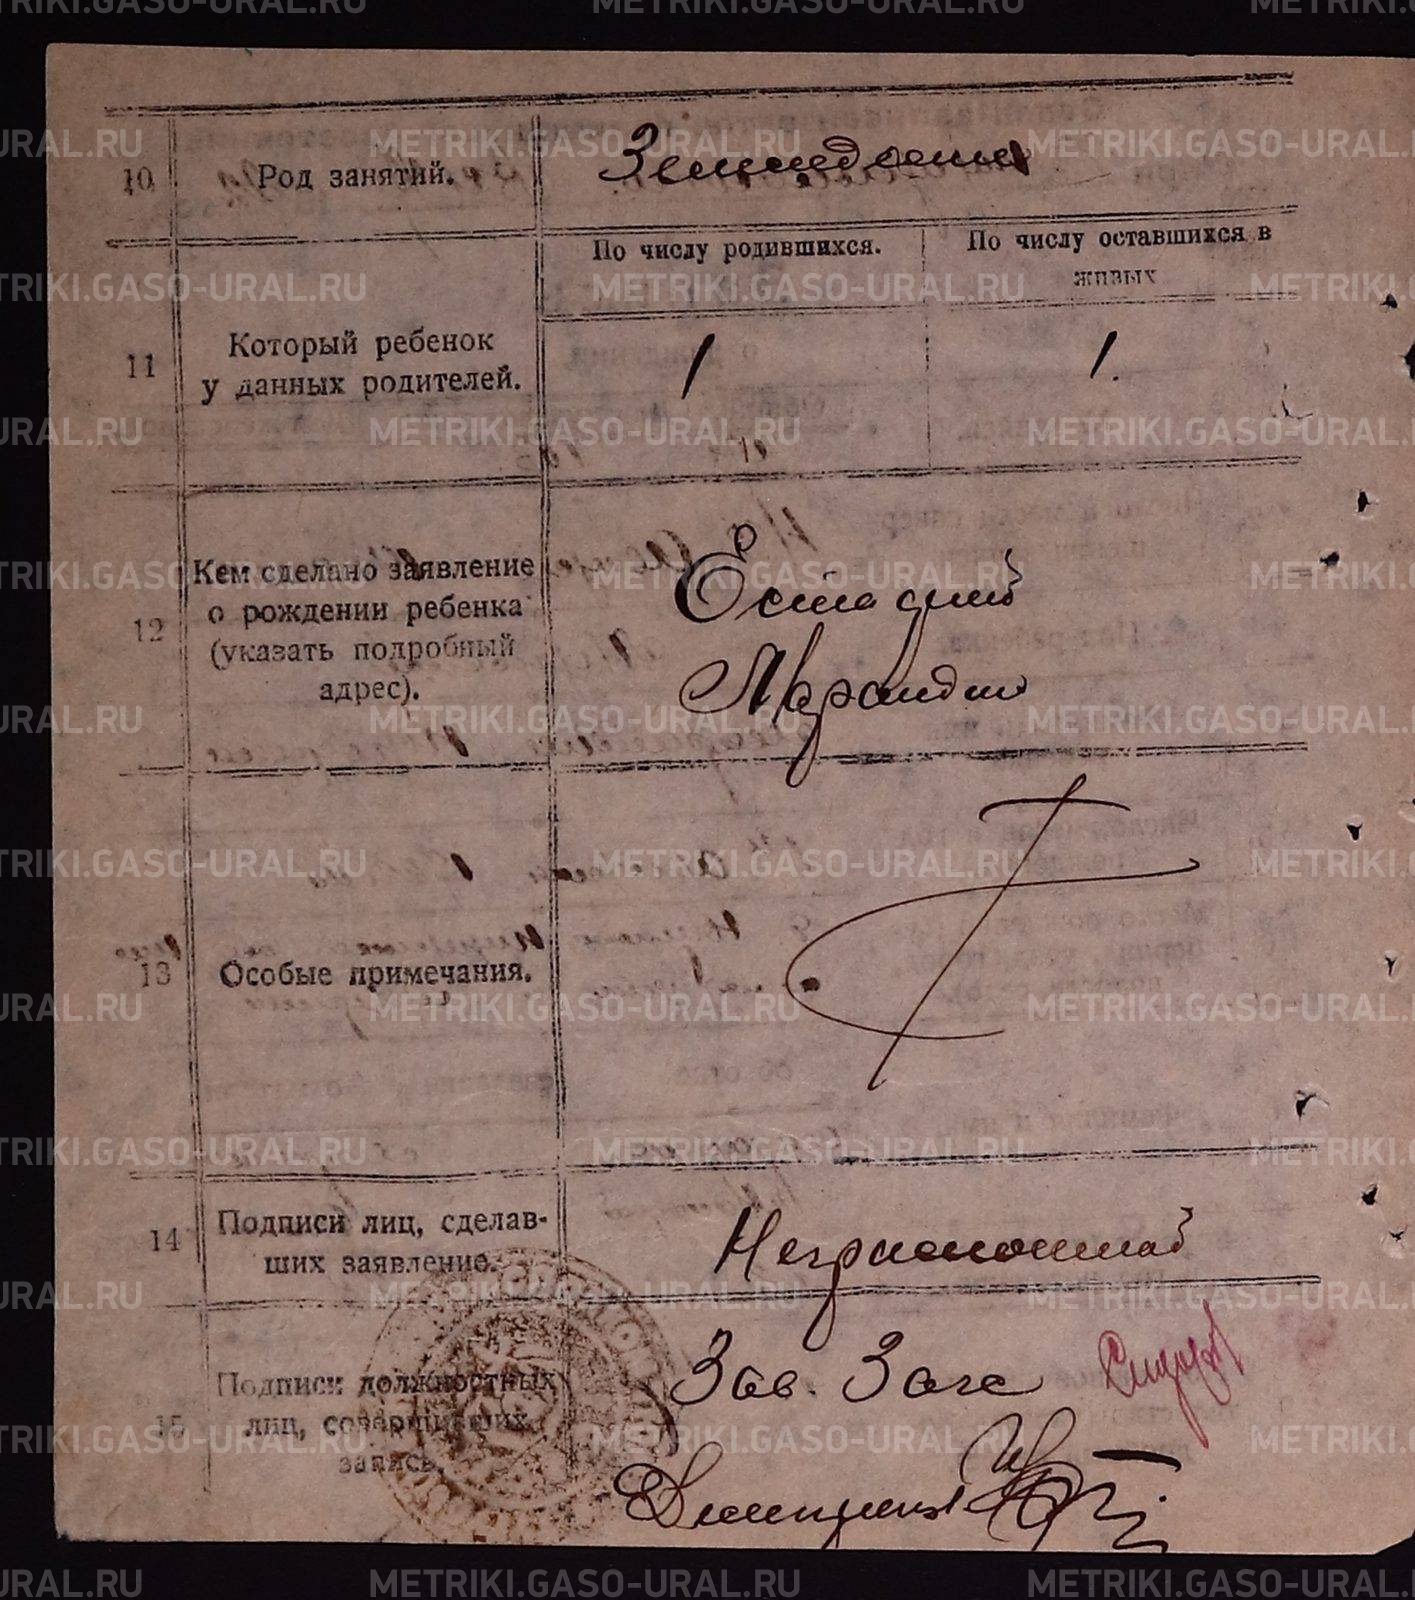 METRIKI.GASO-URAL.RU
10
Род занятий.
11
Который ребенок
у данных родителей.
По числу родившихся.
По числу оставшихся в
живых
1
1.
12
Кем сделано заявление
о рождении ребенка
(указать подробный
адрес).
13
Особые примечания.
14
Подписи лиц, сделав-
ших заявление.
Неграмотной
15
Подписи должностных
лиц, совершивших
запись.
Зав. Загс